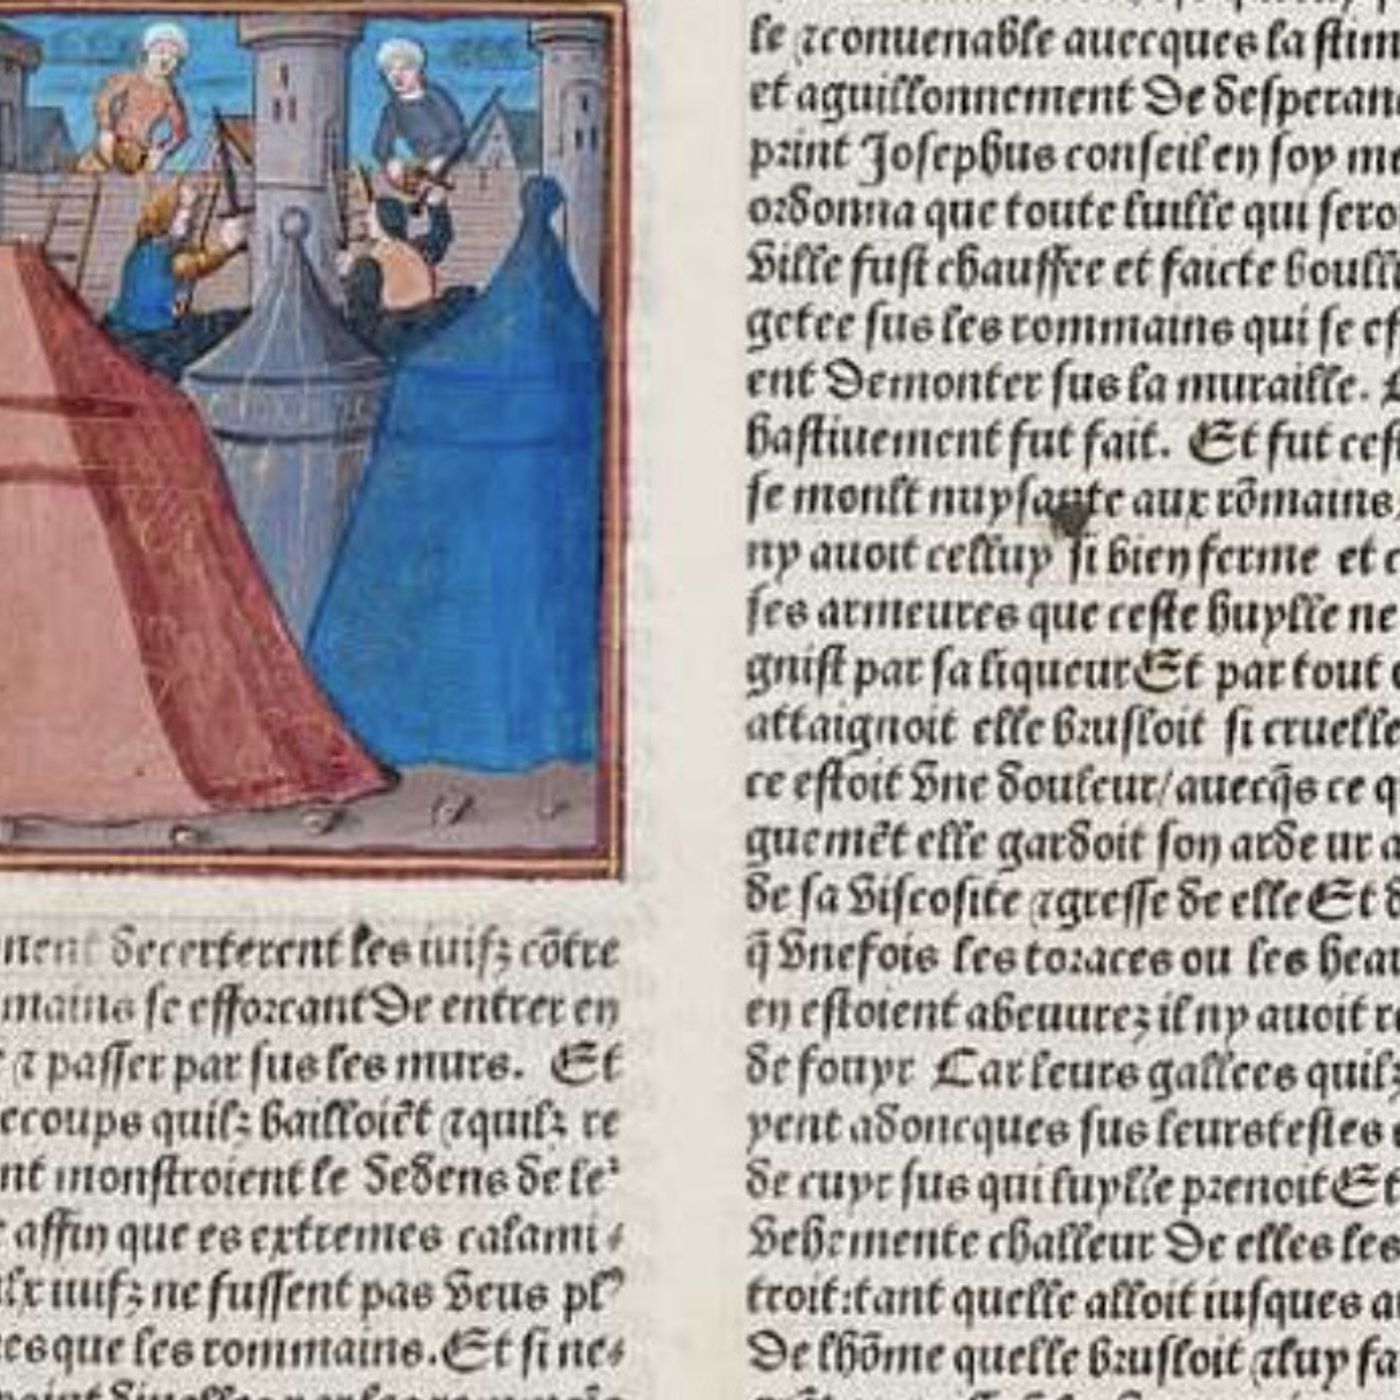 nent decerterent les iuifz cõtre
mains se efforcant De entrer en
⁊ passer par sus les murs. Et
ecoups quilz bailloiẽt ⁊quilz re
nt monstroient le dedens de le²
affin que es extremes calami⸗
ulx iuifz ne fussent pas veus pl⁹
esque les rommains. Et si ne⸗
le ⁊conuenable auecques la stim
et aguillonnement De desperan
print Josephus conseil en soy me
ordonna que toute luille qui sero
ville fust chauffee et faicte boull
getee sus les rommains qui se ef
ent Demonter sus la muraille.
hastiuement fut fait. Et fut cest
se moult nuysante aux rõmains
ny auoit celluy si bien ferme et c
ses armeures que ceste huylle ne
gnist par sa liqueur Et par tout
attaignoit elle brusloit si cruelle
ce estoit vne douleur/auecq̃s ce q
guemẽt elle gardoit son arde ur a
de sa viscosite ⁊gresse de elle Et d
q̃ vnefois les toraces ou les heau
en estoient abeuurez il ny auoit r
de fouyr Car leurs gallees quilz
yent adoncques sus leurs testes
de cuyr sus qui luylle prenoit Et
vehemente challeur De elles les
troit:tant quelle alloit iusques a
De lhõme quelle brusloit ⁊luy fa